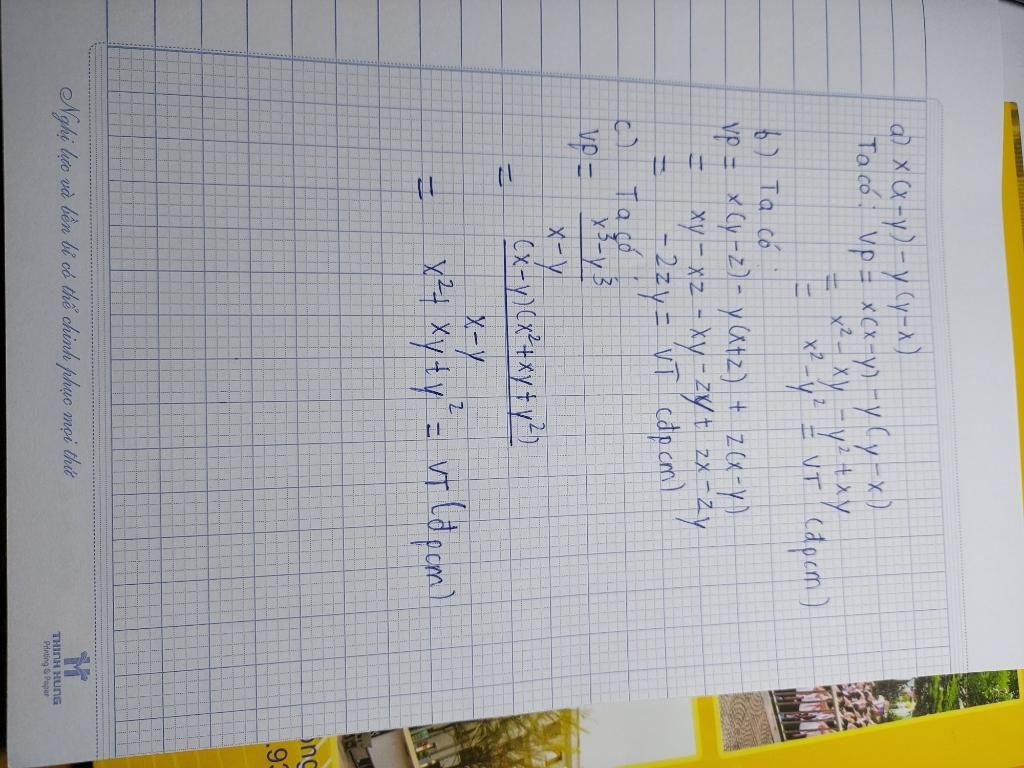 a) x(x-y) - y(y-x)
Ta có: VP = x(x-y) - y(y-x)
= x² - xy - y² + xy
= x² - y² = VT (đpcm)
b) Ta có:
VP = x(y-z) - y(x+z) + z(x-y)
= xy - xz - xy - zy + zx - zy
= -2zy = VT (đpcm)
c) Ta có:
VP = x³-y³
x-y
= (x-y)(x²+xy+y²)
x-y
= x² + xy + y² = VT (đpcm)
Nghị lực và bền bỉ có thể chinh phục mọi thứ
THINH HUNG
Printing & Paper
ong
.93